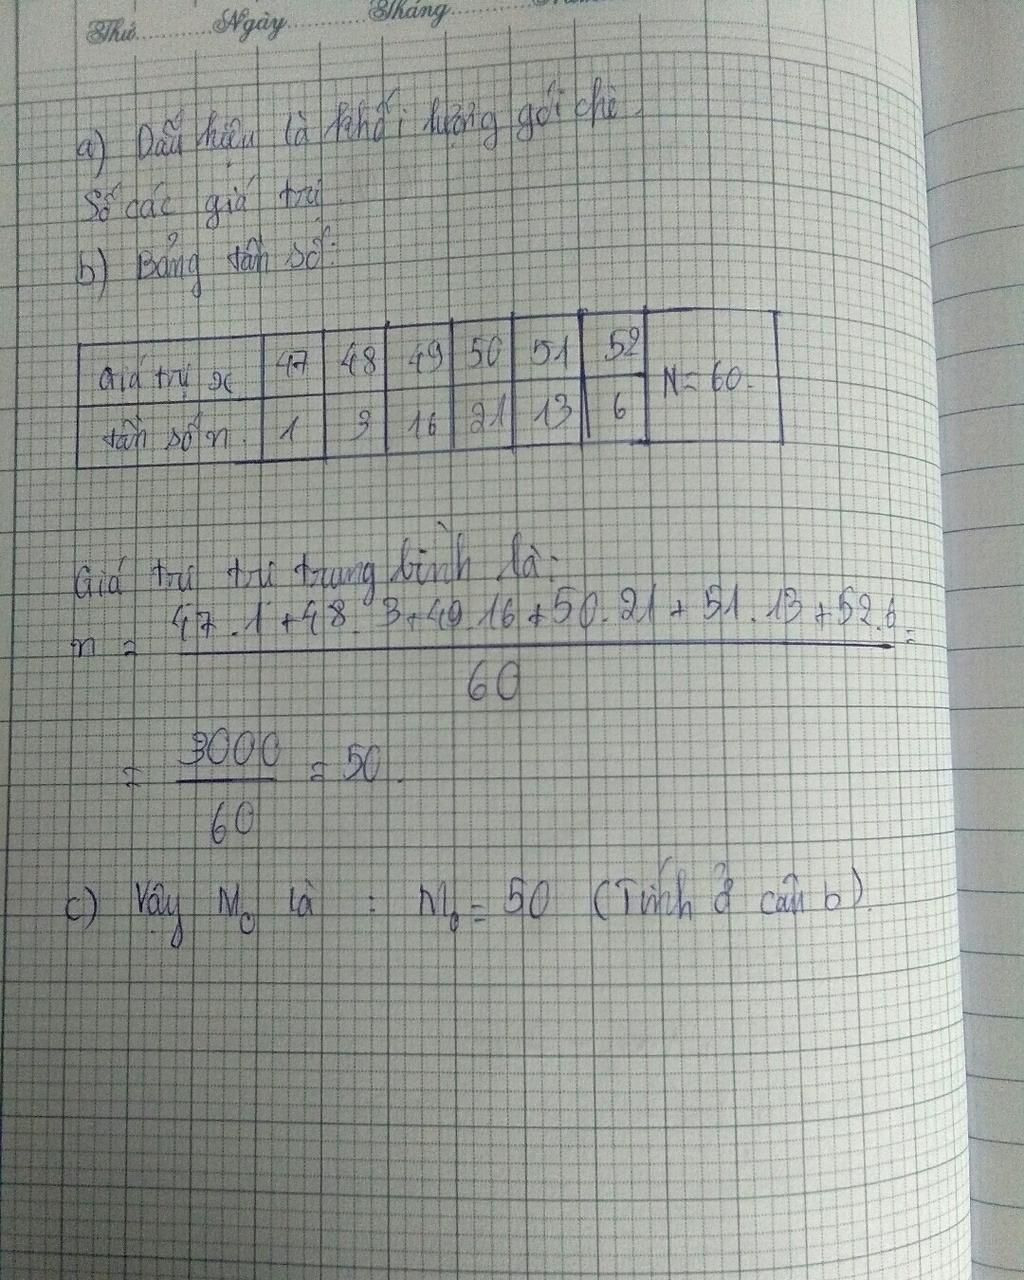 Thứ............Ngày............Tháng............
a) Dấu hiệu là khối lượng gói chè.
Số các giá trị
b) Bảng tần số:
Giá trị x 47 48 49 50 51 52 N = 60.
tần số n. 1 3 16 21 13 6
Giá trị trị trung bình là:
n = 47.1+48.3+49.16+50.21+51.13+52.6 =
60
= 3000 = 50.
60
c) Vậy M₀ là : M₀ = 50 (Tính ở câu b).